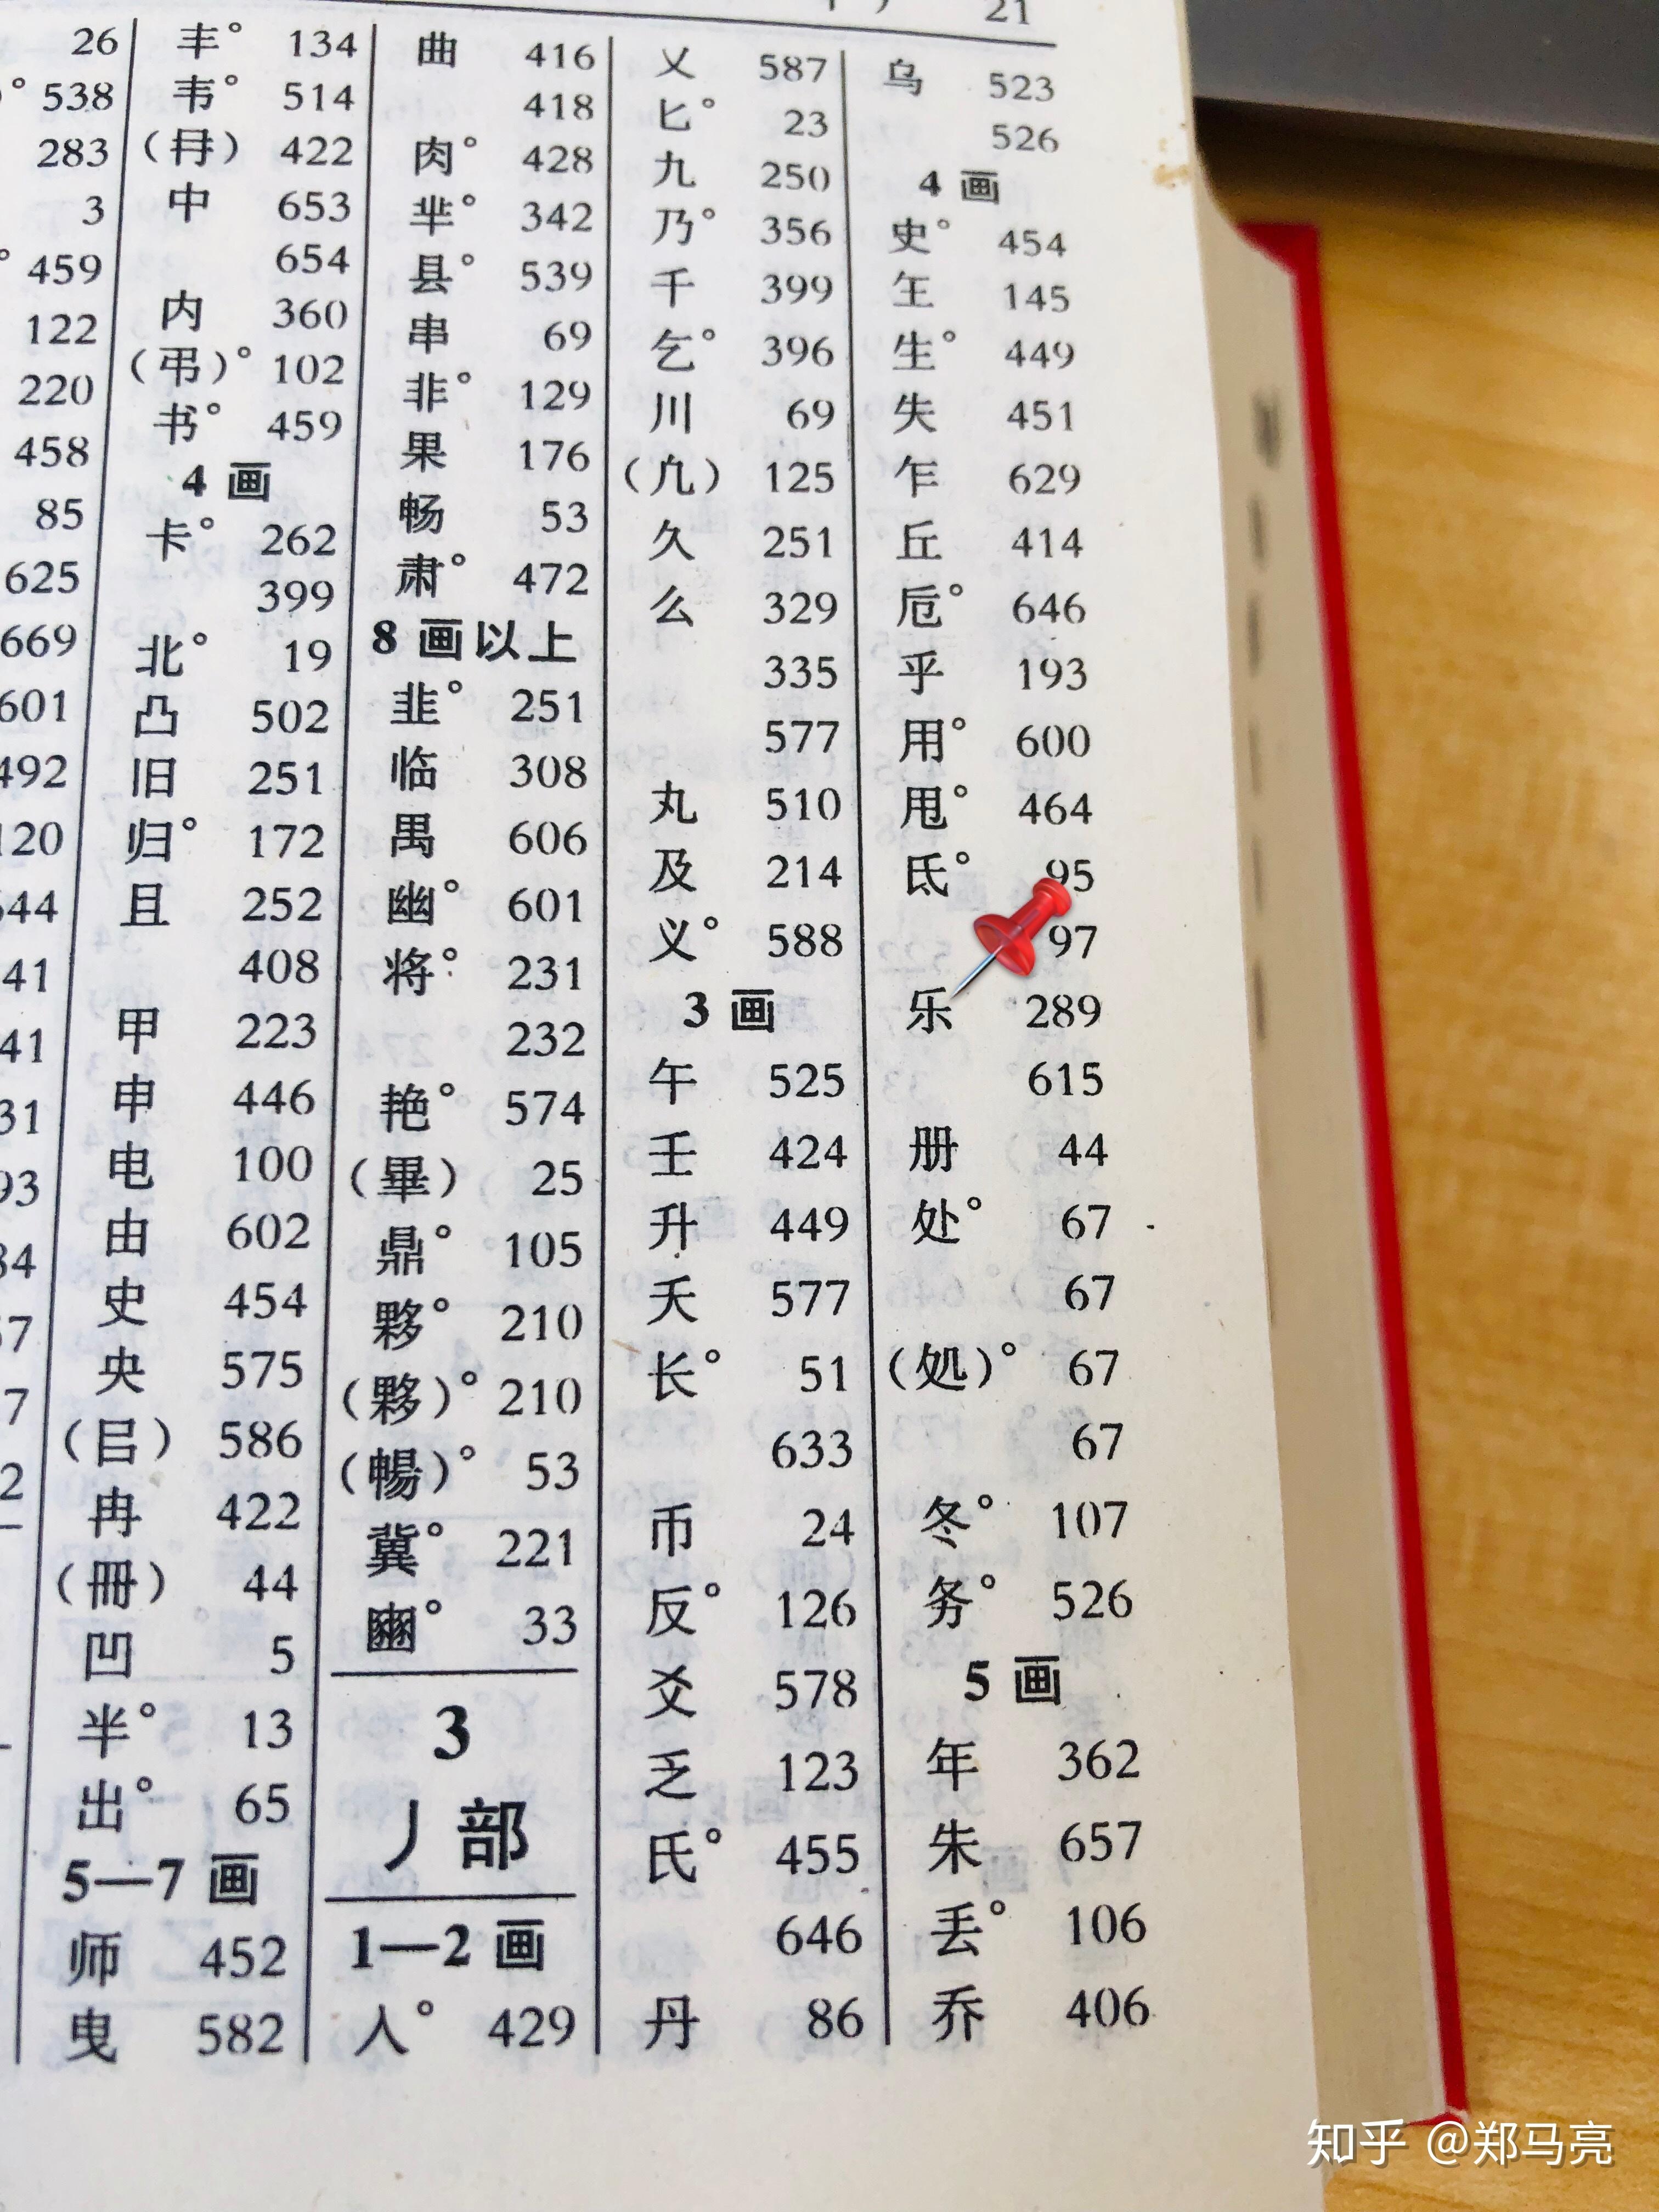 21
26
538
283
3
459
122
220
458
85
625
669
601
492
120
644
41
41
31
93
84
57
7
2
丰° 134
韦° 514
(冄) 422
中 653
654
内 360
(弔)° 102
书° 459
4 画
卡° 262
399
北° 19
凸 502
旧 251
归° 172
且 252
408
甲 223
申 446
电 100
由 602
史 454
央 575
(㠯) 586
冉 422
(冊) 44
凹 5
半° 13
出° 65
5—7 画
师 452
曳 582
曲 416
418
肉° 428
芈° 342
县° 539
串 69
非° 129
果 176
畅 53
肃° 472
8 画以上
韭° 251
临 308
禺 606
幽° 601
将° 231
232
艳° 574
(畢) 25
鼎° 105
夥° 210
(夥)° 210
(暢)° 53
冀° 221
豳° 33
3
丿部
1—2 画
入° 429
乂 587
匕° 23
九 250
乃° 356
千 399
乞° 396
川 69
(凢) 125
久 251
么 329
335
577
丸 510
及 214
义° 588
3 画
午 525
壬 424
升 449
夭 577
长° 51
633
币 24
反° 126
爻 578
乏 123
氏° 455
646
丹 86
乌 523
526
4 画
史° 454
玍 145
生° 449
失 451
乍 629
丘 414
卮° 646
乎 193
用° 600
甩° 464
氐° 95
97
乐 289
615
册 44
处° 67
67
(処)° 67
67
冬° 107
务° 526
5 画
年 362
朱 657
丢° 106
乔 406
知乎 @郑马亮